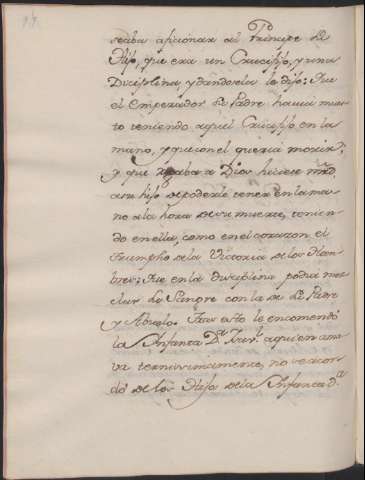 seaba aficionar al Principe su
Hijo, que era un Crucifijo, y una
Disciplina, y dandosela le dijo: Que
el Emperador su Padre havia muer-
to teniendo aquel Crucifijo en la
mano, y que con el queria morir;
y que rogaba a Dios hiciese mrd.
a su hijo de poderle tener en la ma-
no a la hora de su muerte, tenien-
do en ella, como en el corazon el
Triumpho de la Victoria de los Hom-
bres: Que en la Disciplina podia mez-
clar su Sangre con la de su Padre
y Abuelo. Tras esto le encomendó
la Infanta D.ª Isav.l a quien ama-
va ternissimamente, no se acor-
dó de los Hijos de la Infanta D.ª